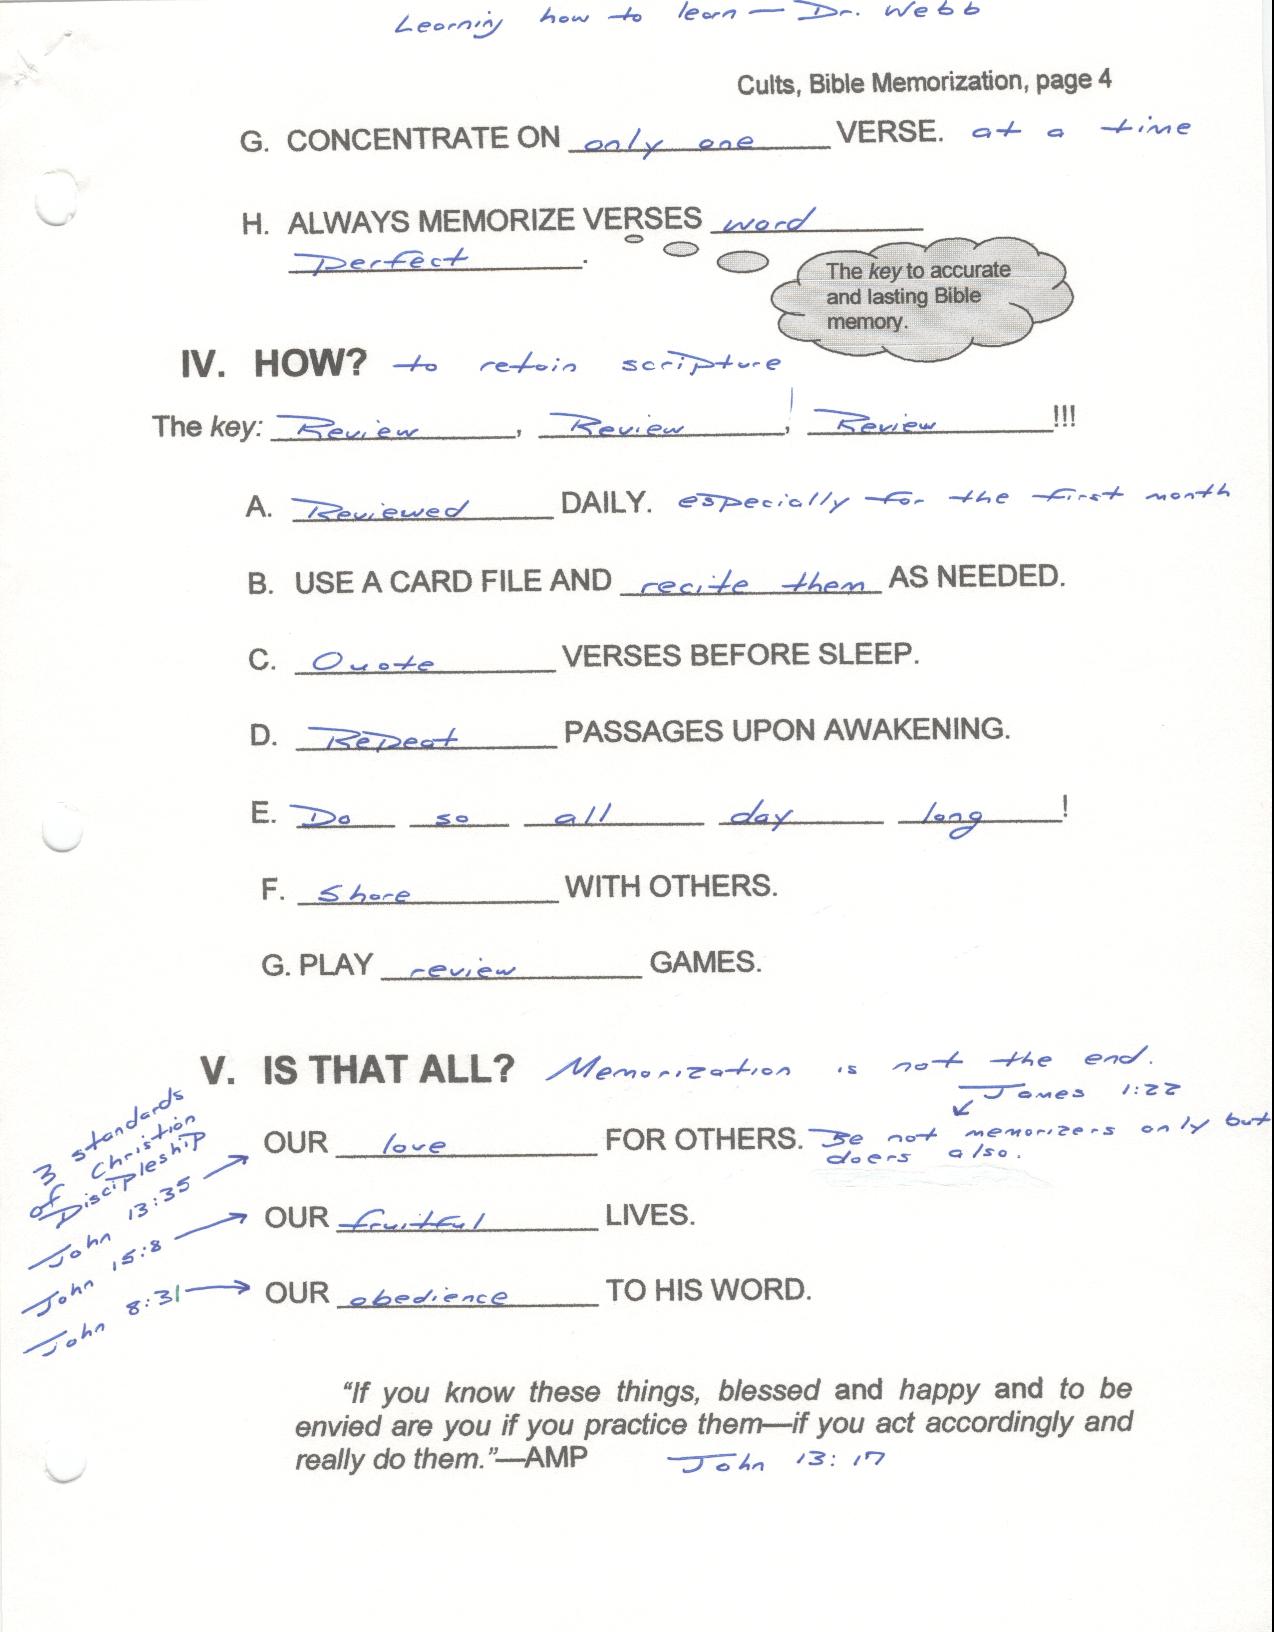 Learning how to learn — Dr. Webb
Cults, Bible Memorization, page 4
G. CONCENTRATE ON only one VERSE. at a time
H. ALWAYS MEMORIZE VERSES word
Perfect.
The key to accurate
and lasting Bible
memory.
IV. HOW? to retain scripture
The key: Review, Review, Review!!!
A. Reviewed DAILY. especially for the first month
B. USE A CARD FILE AND recite them AS NEEDED.
C. Quote VERSES BEFORE SLEEP.
D. Repeat PASSAGES UPON AWAKENING.
E. Do so all day long!
F. Share WITH OTHERS.
G. PLAY review GAMES.
V. IS THAT ALL? Memorization is not the end.
James 1:22
OUR love FOR OTHERS. Be not memorizers only but
doers also.
OUR fruitful LIVES.
OUR obedience TO HIS WORD.
3 standards
of Christian
Discipleship
John 13:35
John 15:8
John 8:31
"If you know these things, blessed and happy and to be
envied are you if you practice them—if you act accordingly and
really do them."—AMP John 13:17